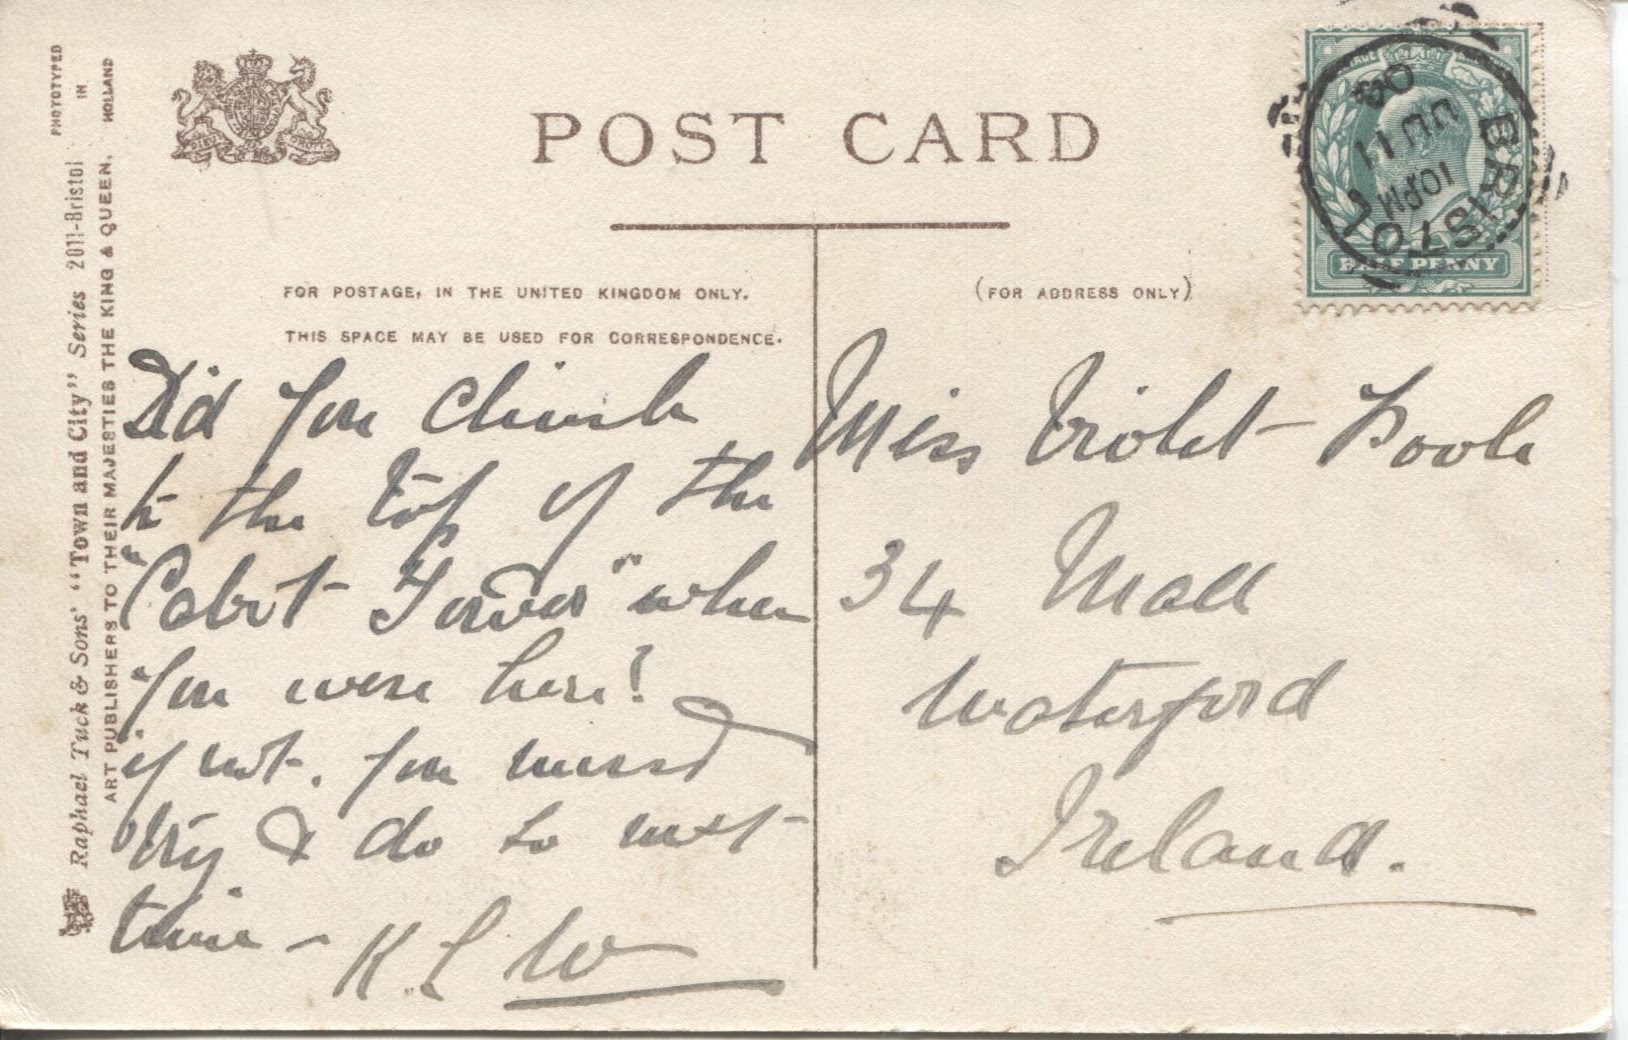 PHOTOTYPED IN HOLLAND
Raphael Tuck & Sons' "Town and City" Series 2011-Bristol
ART PUBLISHERS TO THEIR MAJESTIES THE KING & QUEEN.
POST CARD
FOR POSTAGE, IN THE UNITED KINGDOM ONLY.
THIS SPACE MAY BE USED FOR CORRESPONDENCE.
(FOR ADDRESS ONLY)
BRISTOL
10 PM
JU 11
HALF PENNY
Did you climb
to the top of the
"Cabot Tower" when
you were here?
if not. you must
try & do so next
time – K. L W
Miss Violet Poole
34 Mall
Waterford
Ireland.